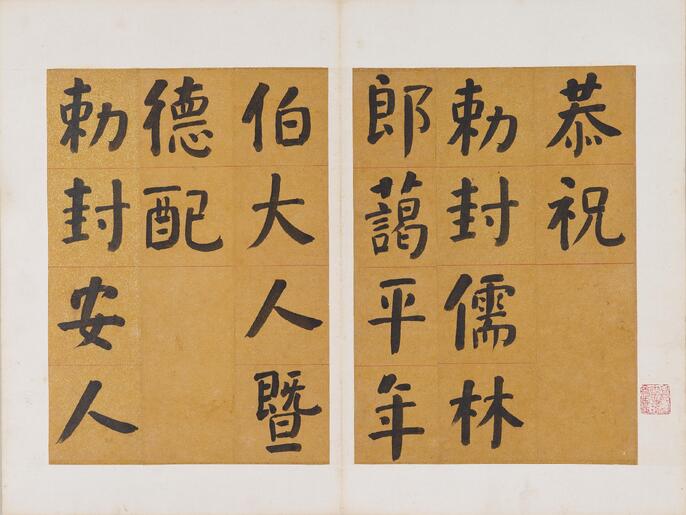 恭祝
勅封儒林
郎藹平年
伯大人暨
德配
勅封安人